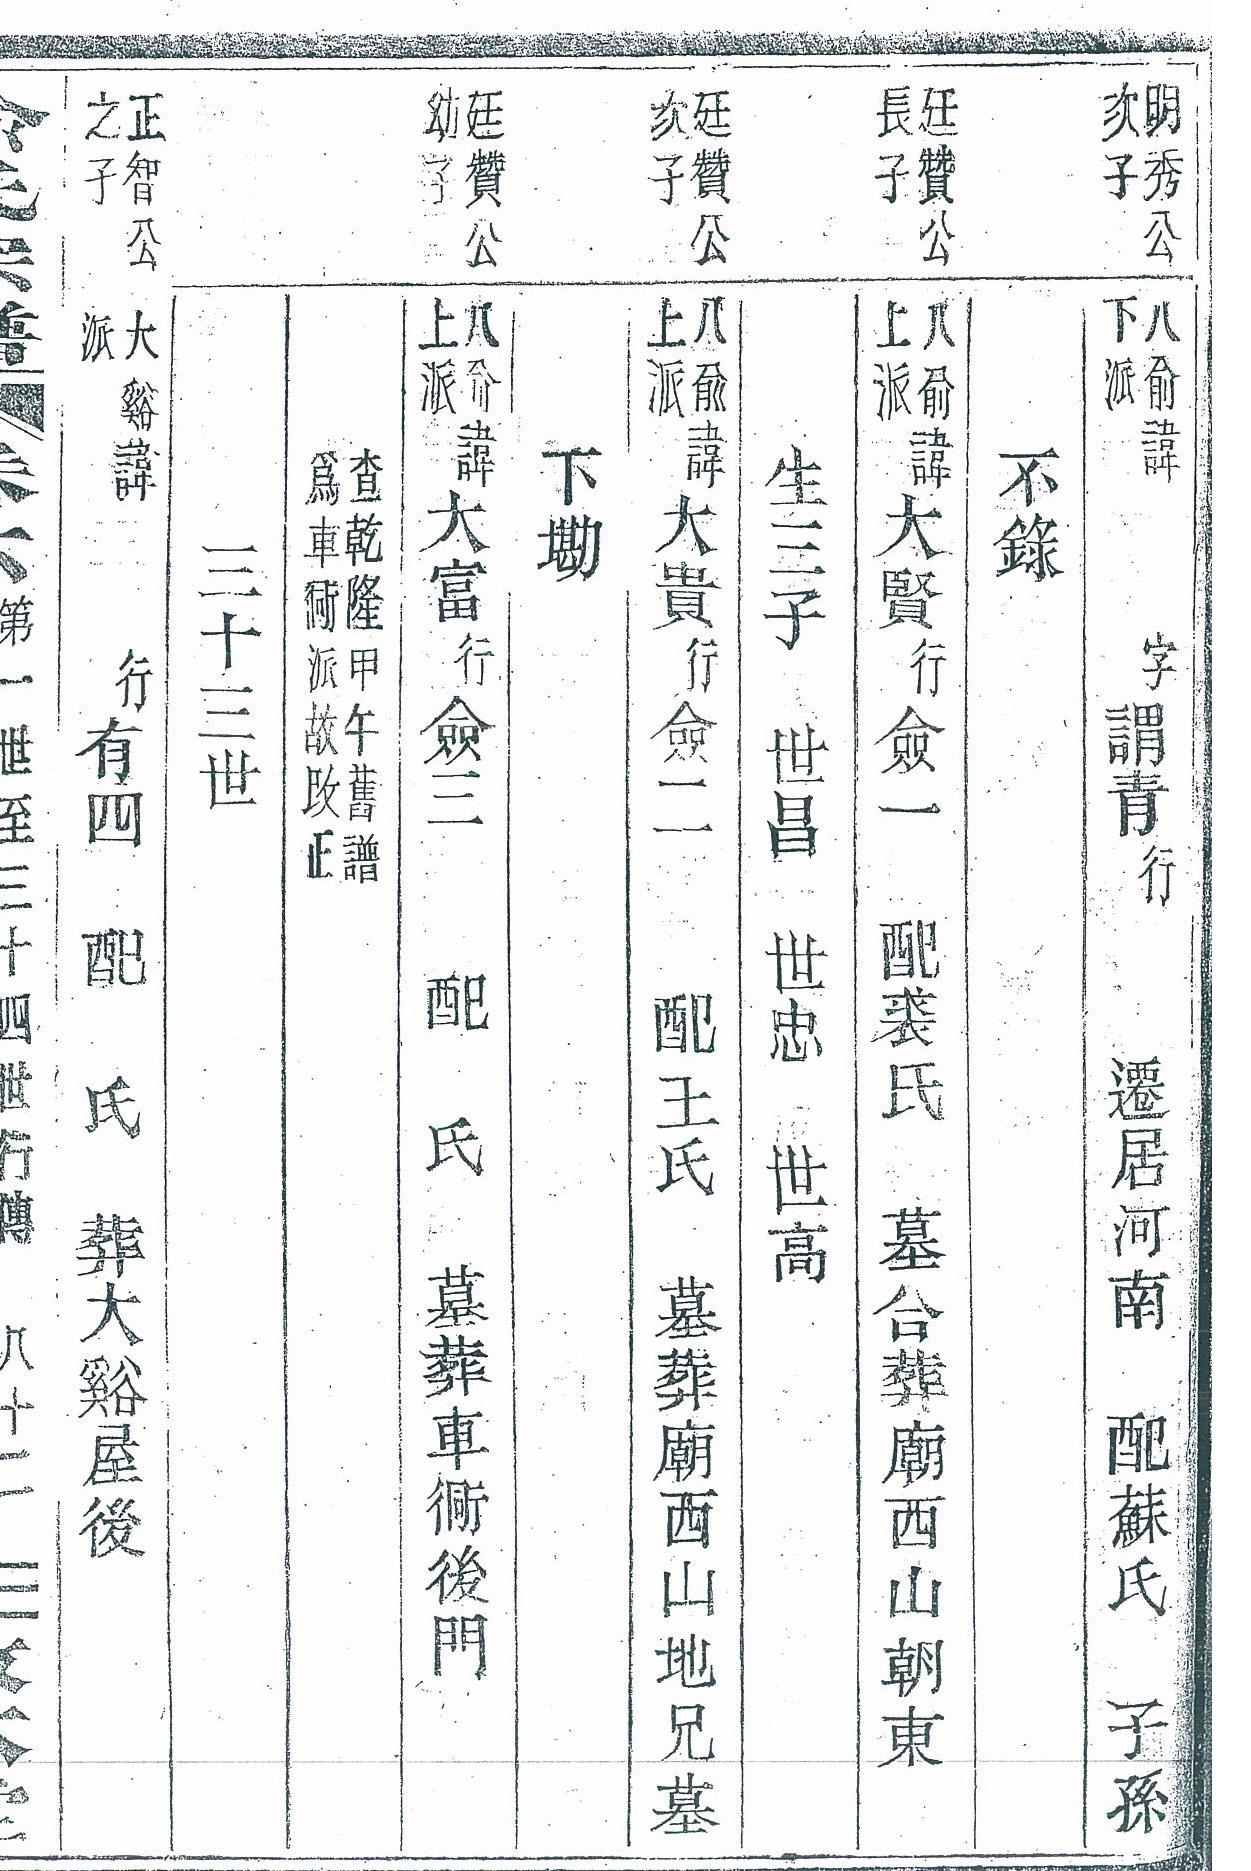 明秀公
次子
八俞
下派
諱 字謂青行 遷居河南 配蘇氏 子孫
不錄
廷贊公
長子
八俞
上派
諱大賢行僉一 配裘氏 墓合葬廟西山朝東
生三子 世昌 世忠 世高
廷贊公
次子
八俞
上派
諱大貴行僉二 配王氏 墓葬廟西山地兄墓
下墈
廷贊公
幼子
八俞
上派
諱大富行僉三 配 氏 墓葬車衕後門
查乾隆甲午舊譜
爲車衕派故改正
三十三世
正智公
之子
大谿
派
諱 行有四 配 氏 葬大谿屋後
宗譜 卷六 第一世至三十四世行傳 八十二